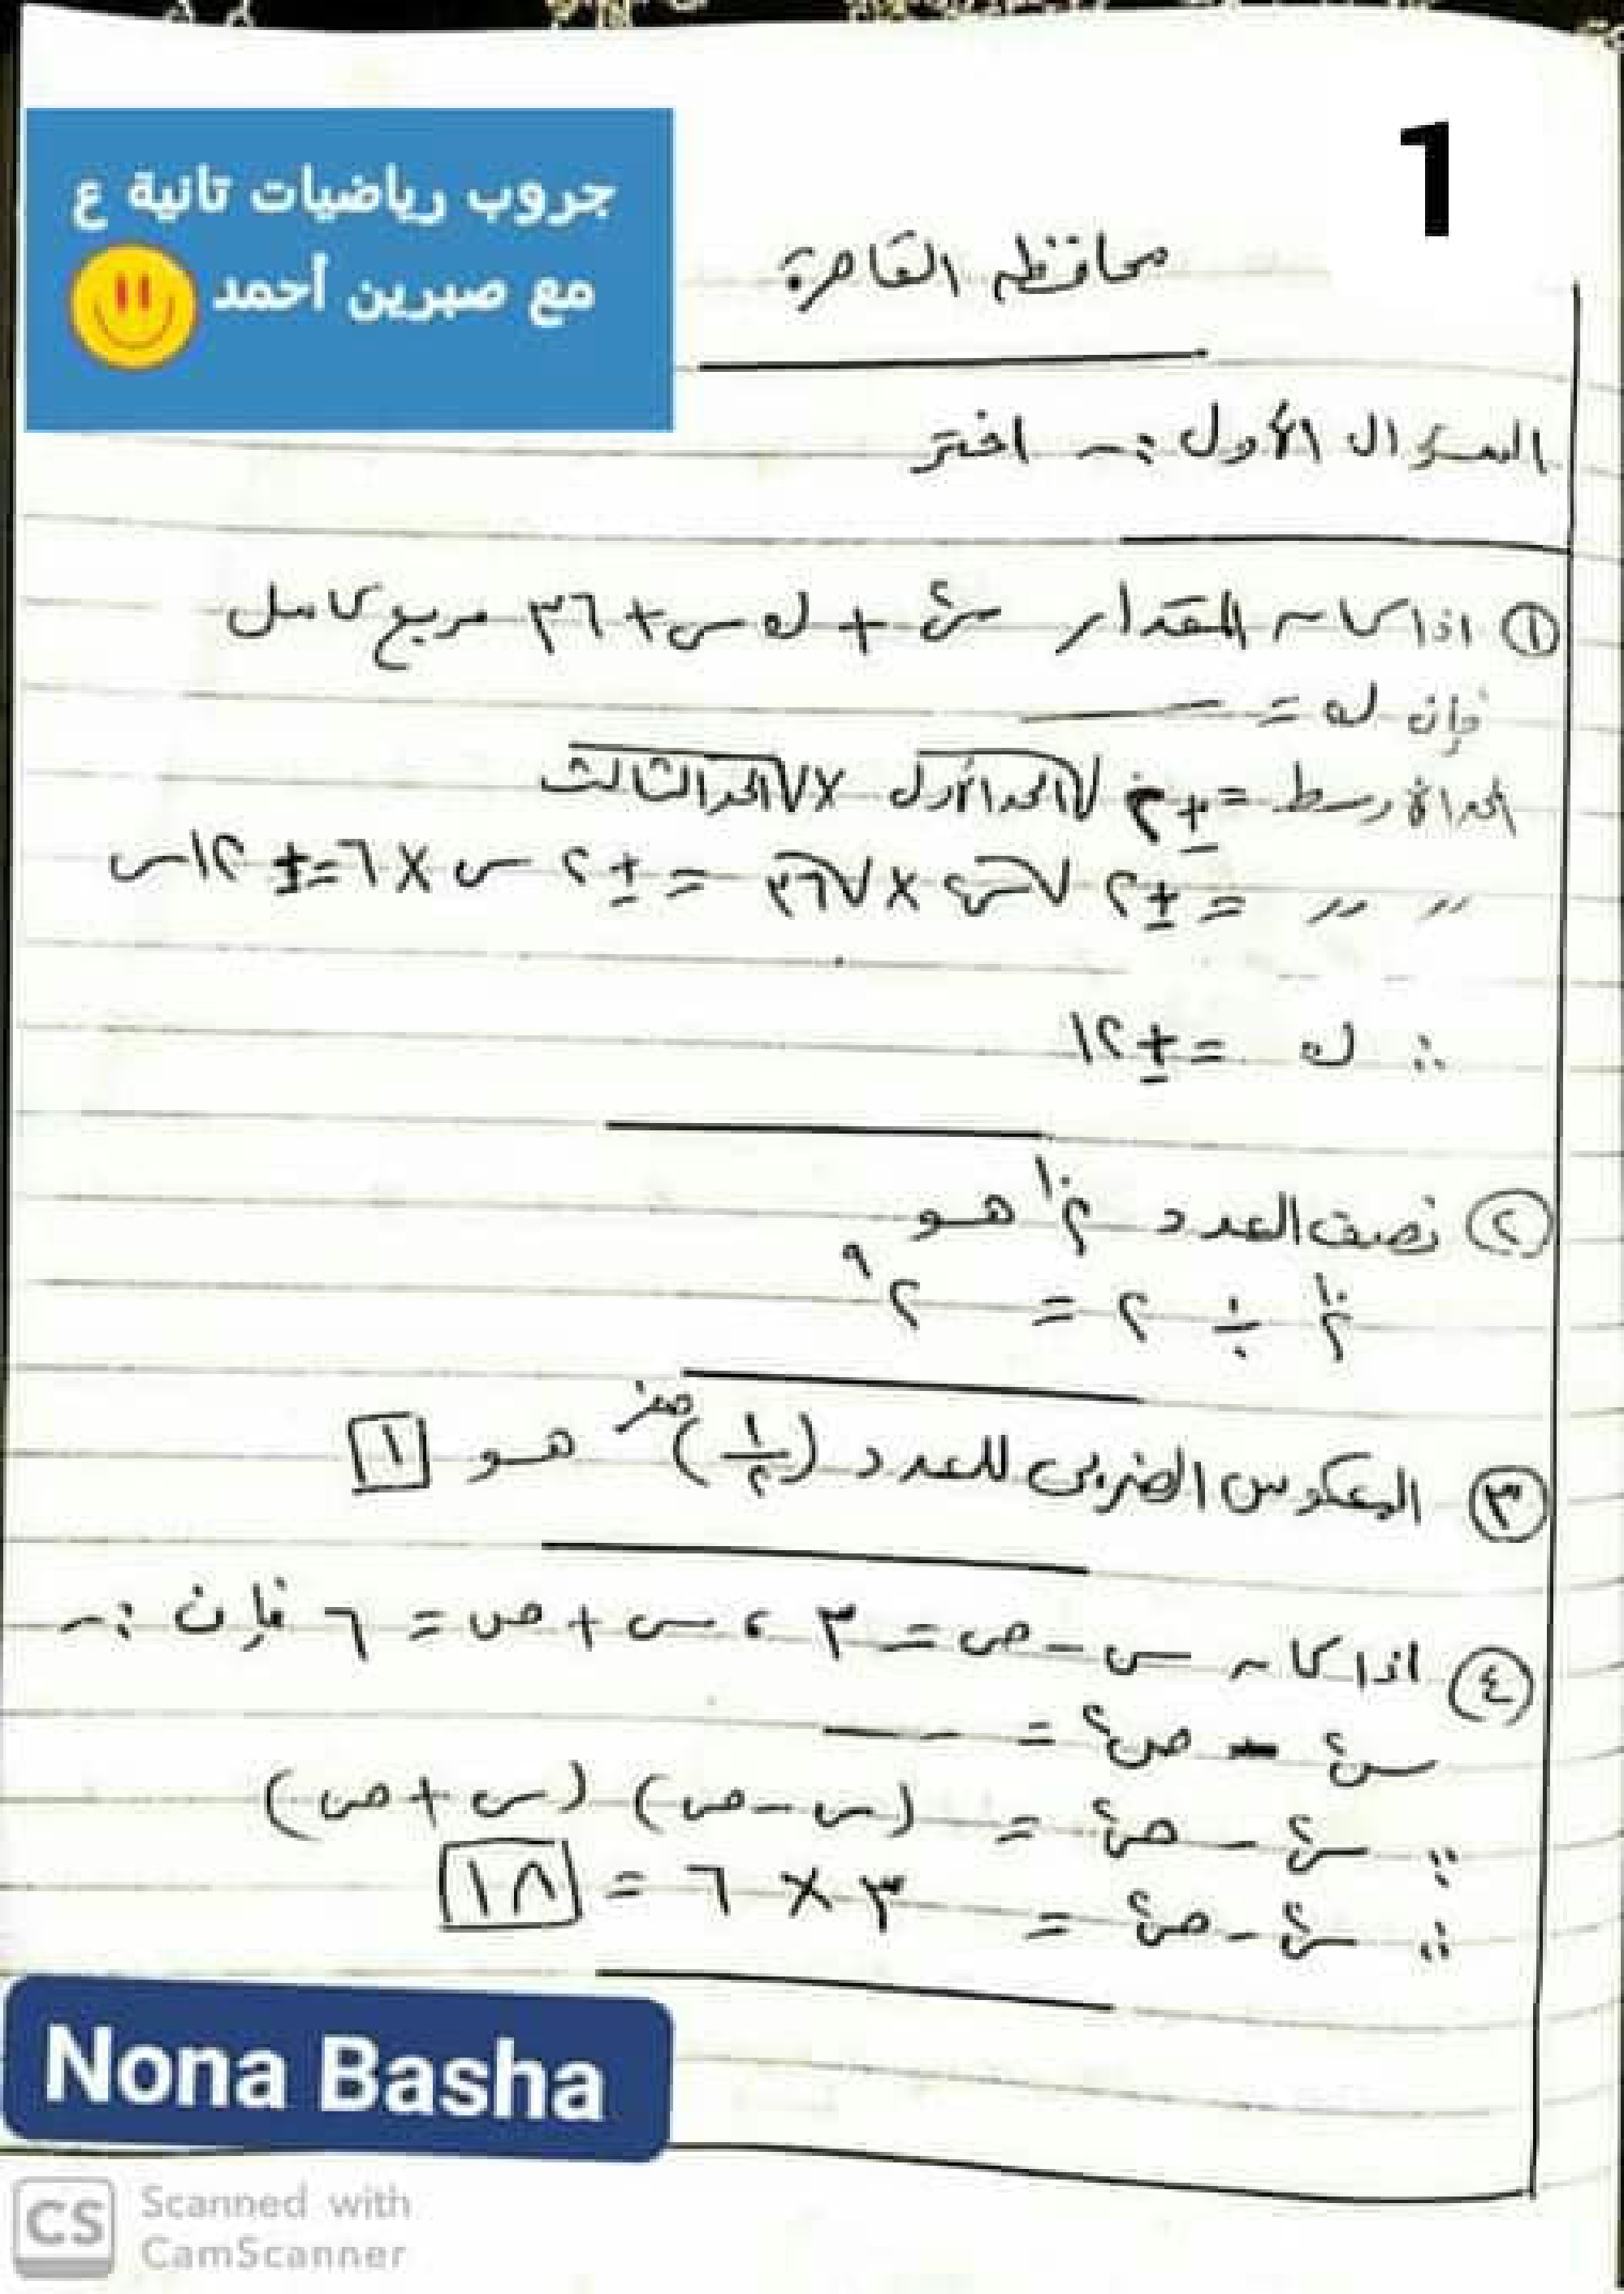 1
جروب رياضيات تانية ع
مع صبرين أحمد
محافظه القاهرة
السؤال الأول :- اختر
① اذا كان المقدار س² + ك س + ٣٦ مربع كامل
فإن ك = ــــ
الحد الأوسط = ± ٢ √الحد الأول × √الحد الثالث
〃 〃 = ± ٢ √س² × √٣٦ = ± ٢ س × ٦ = ± ١٢ س
∴ ك = ± ١٢
② نصف العدد ٢¹⁰ هو
٢¹⁰ ÷ ٢ = ٢⁹
③ المعكوس الضربى للعدد (١/٢)^صفر هو ١
④ اذا كان س - ص = ٣ ، س + ص = ٦ فإن :-
س² - ص² = ــــ
∴ س² - ص² = (س - ص) (س + ص)
∴ س² - ص² = ٣ × ٦ = ١٨
Nona Basha
CS Scanned with
CamScanner